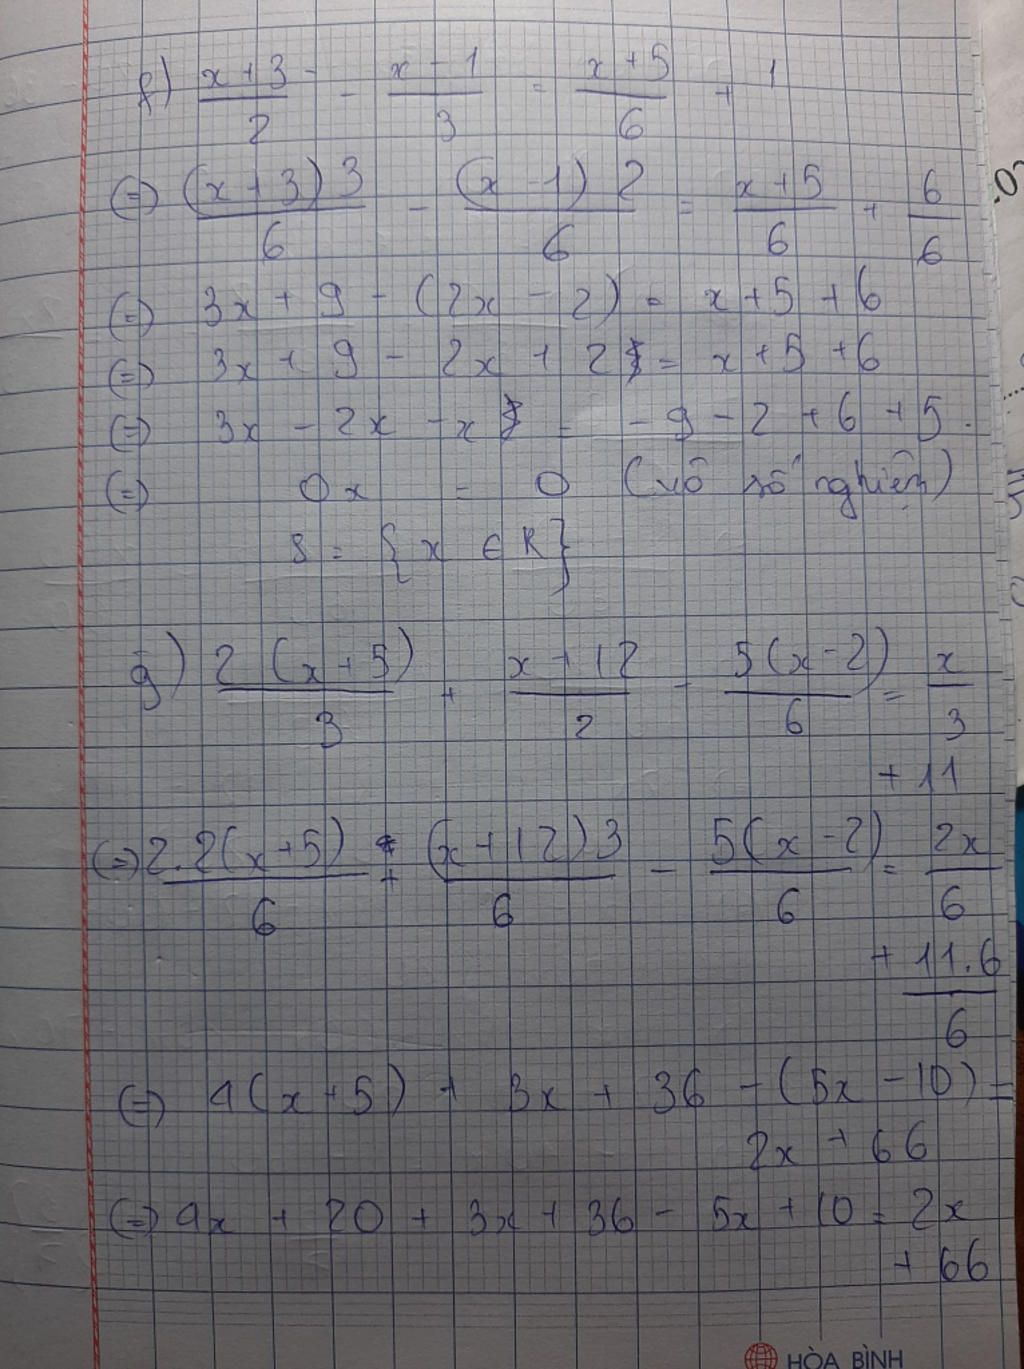 f) (x+3)/2 - (x-1)/3 = (x+5)/6 + 1
(=) (x+3)3/6 - (x-1)2/6 = (x+5)/6 + 6/6
(=) 3x + 9 - (2x - 2) = x+5 +6
(=) 3x + 9 - 2x + 2 = x+5 +6
(=) 3x - 2x -x = -9-2+6+5.
(=) 0x = 0 (vô số nghiệm)
S = {x ∈ R}
g) 2(x+5)/3 + (x+12)/2 - 5(x-2)/6 = x/3
+ 11
(=) 2.2(x+5)/6 + (x+12)3/6 - 5(x-2)/6 = 2x/6
+ 11.6/6
(=) 4(x+5) + 3x + 36 - (5x - 10) =
2x + 66
(=) 4x + 20 + 3x + 36 - 5x + 10 = 2x
+ 66
HÒA BÌNH